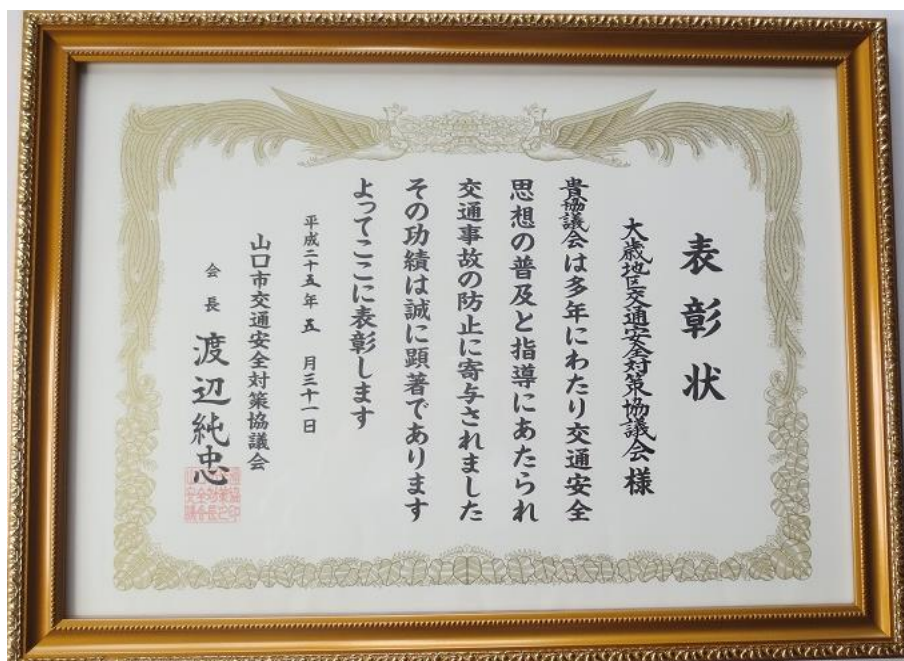 表彰状
大歳地区交通安全対策協議会様
貴協議会は多年にわたり交通安全
思想の普及と指導にあたられ
交通事故の防止に寄与されました
その功績は誠に顕著であります
よってここに表彰します
平成二十五年五月三十一日
山口市交通安全対策協議会
会長 渡辺純忠